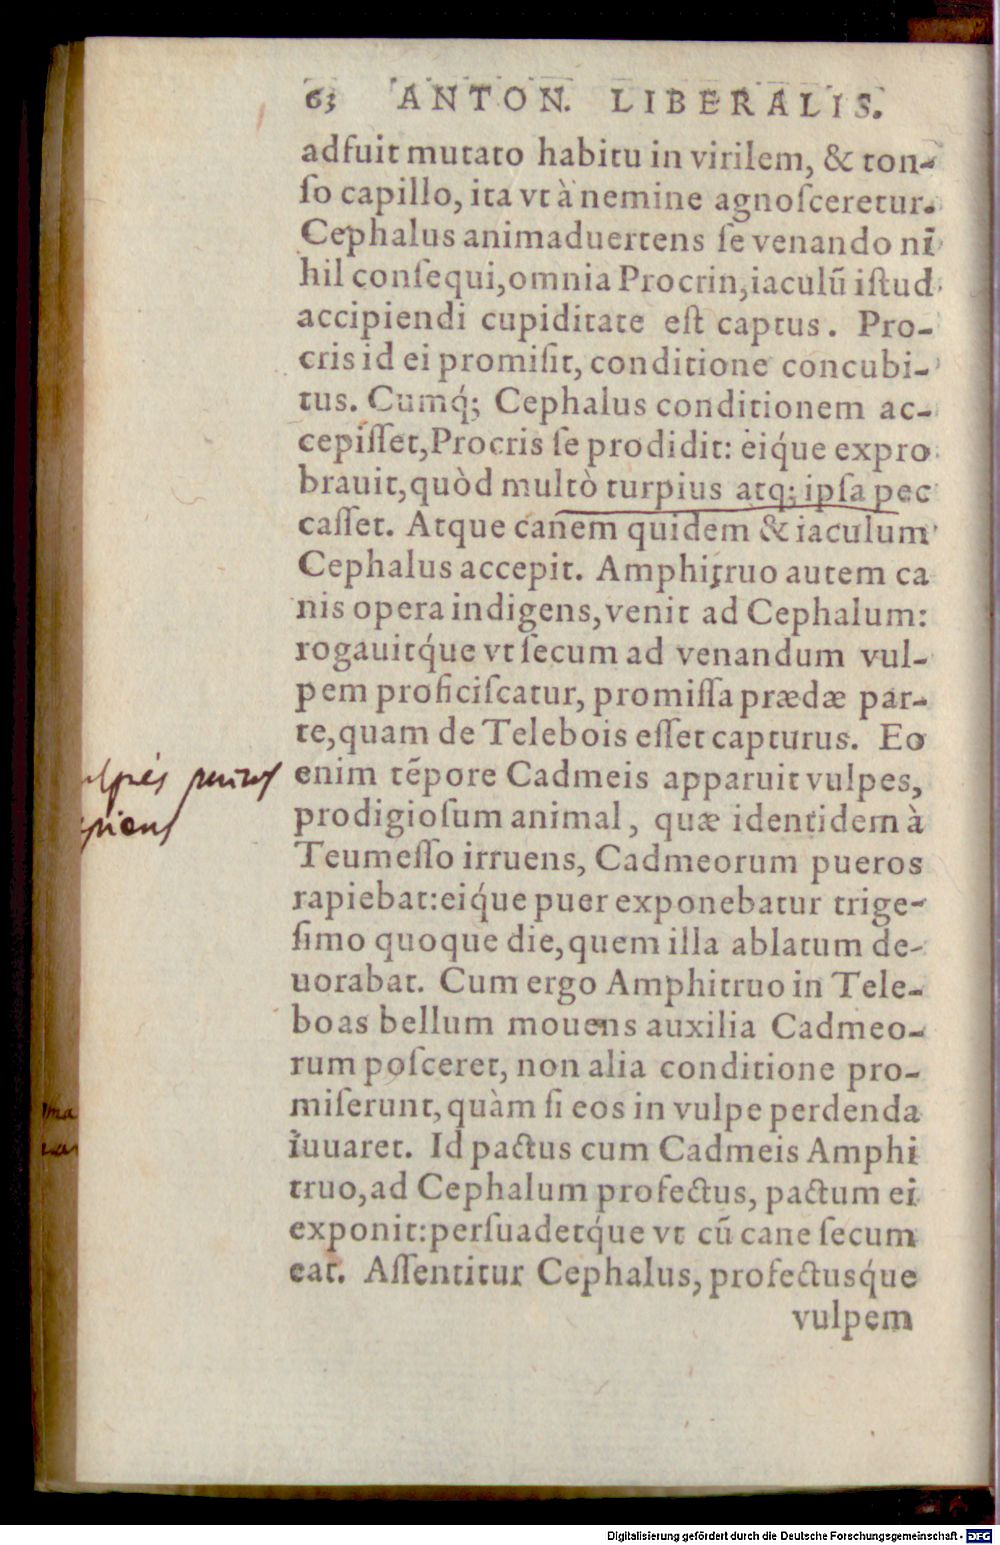 63 ANTON. LIBERALIS.
adfuit mutato habitu in virilem, & ton-
ſo capillo, ita vt à nemine agnoſceretur.
Cephalus animaduertens ſe venando ni
hil conſequi, omnia Procrin, iaculū iſtud
accipiendi cupiditate eſt captus. Pro-
cris id ei promiſit, conditione concubi-
tus. Cumq́; Cephalus conditionem ac-
cepiſſet, Procris ſe prodidit: eiq́ue expro
brauit, quòd multò turpius atq; ipſa pec
caſſet. Atque canem quidem & iaculum
Cephalus accepit. Amphitruo autem ca
nis opera indigens, venit ad Cephalum:
rogauitq́ue vt ſecum ad venandum vul-
pem proficiſcatur, promiſſa prædæ par-
te, quam de Telebois eſſet capturus. Eo
enim tēpore Cadmeis apparuit vulpes,
prodigioſum animal, quæ identidem à
Teumeſſo irruens, Cadmeorum pueros
rapiebat: eiq́ue puer exponebatur trige-
ſimo quoque die, quem illa ablatum de-
uorabat. Cum ergo Amphitruo in Tele-
boas bellum mouens auxilia Cadmeo-
rum poſceret, non alia conditione pro-
miſerunt, quàm ſi eos in vulpe perdenda
iuuaret. Id pactus cum Cadmeis Amphi
truo, ad Cephalum profectus, pactum ei
exponit: perſuadetq́ue vt cū cane ſecum
eat. Aſſentitur Cephalus, profectusq́ue
vulpem
Digitalisierung gefördert durch die Deutsche Forschungsgemeinschaft - DFG